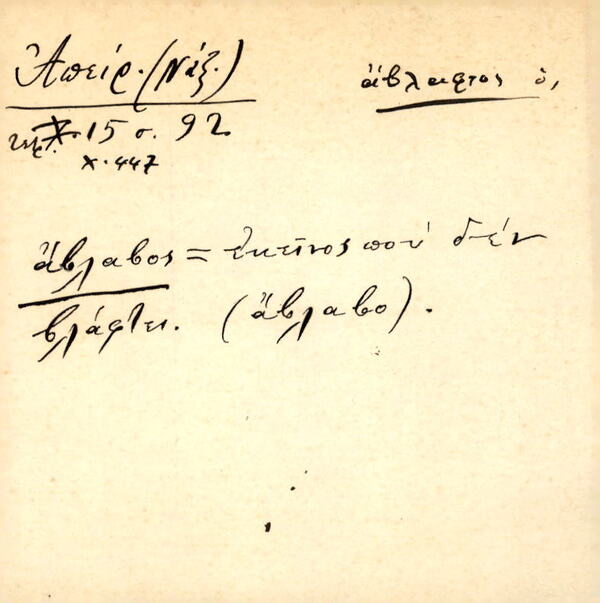 Ἀπείρ. (Νάξ.)
ἄβλαφτος ὁ,
τετρ. 15 σ. 92
Χ. 447
ἄβλαβος = ἐκεῖνος ποὺ δὲν
βλάφτει. (ἄβλαβο).